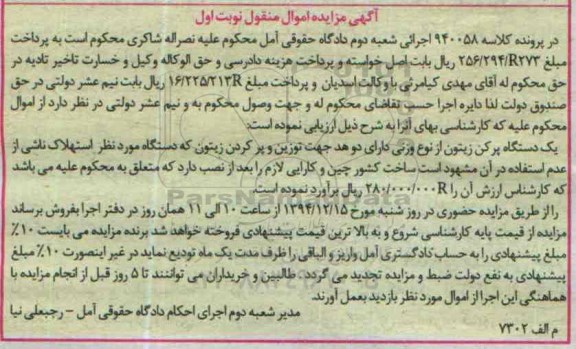 آگهی مزایده اموال منقول نوبت اول
در پرونده کلاسه ۹۴۰۰۵۸ اجرائی شعبه دوم دادگاه حقوقی آمل محکوم علیه نصراله شاکری محکوم است به پرداخت
مبلغ ۲۵۶/۲۹۴/R۲۷۳ ریال بابت اصل خواسته و پرداخت هزینه دادرسی و حق الوکاله وکیل و خسارت تاخیر تادیه در
حق محکوم له آقای مهدی کیامرثی با وکالت اسدیان و پرداخت مبلغ ۱۶/۲۲۵/۲۱۳R ریال بابت نیم عشر دولتی در حق
صندوق دولت لذا دایره اجرا حسب تقاضای محکوم له و جهت وصول محکوم به و نیم عشر دولتی در نظر دارد از اموال
محکوم علیه که کارشناسی بهای آنرا به شرح ذیل ارزیابی نموده است:
یک دستگاه پرکن زیتون از نوع وزنی دارای دو هد جهت توزین و پر کردن زیتون که دستگاه مورد نظر استهلاک ناشی از
عدم استفاده در آن مشهود است ساخت کشور چین و کارایی لازم را بعد از نصب دارد که متعلق به محکوم علیه می باشد
که کارشناس ارزش آن را ۲۸۰/۰۰۰/۰۰۰R ریال برآورد نموده است.
را از طریق مزایده حضوری در روز شنبه مورخ ۱۳۹۴/۱۲/۱۵ از ساعت ۱۰ الی ۱۱ همان روز در دفتر اجرا بفروش برساند
مزایده از قیمت پایه کارشناسی شروع و به بالا ترین قیمت پیشنهادی فروخته خواهد شد برنده مزایده می بایست ۱۰٪
مبلغ پیشنهادی را به حساب دادگستری آمل واریز و الباقی را ظرف مدت یک ماه تودیع نماید در غیر اینصورت ۱۰٪ مبلغ
پیشنهادی به نفع دولت ضبط و مزایده تجدید می گردد . طالبین و خریداران می توانند تا ۵ روز قبل از انجام مزایده با
هماهنگی این اجرا از اموال مورد نظر بازدید بعمل آورند.
مدیر شعبه دوم اجرای احکام دادگاه حقوقی آمل – رجبعلی نیا
م الف ۷۳۰۲